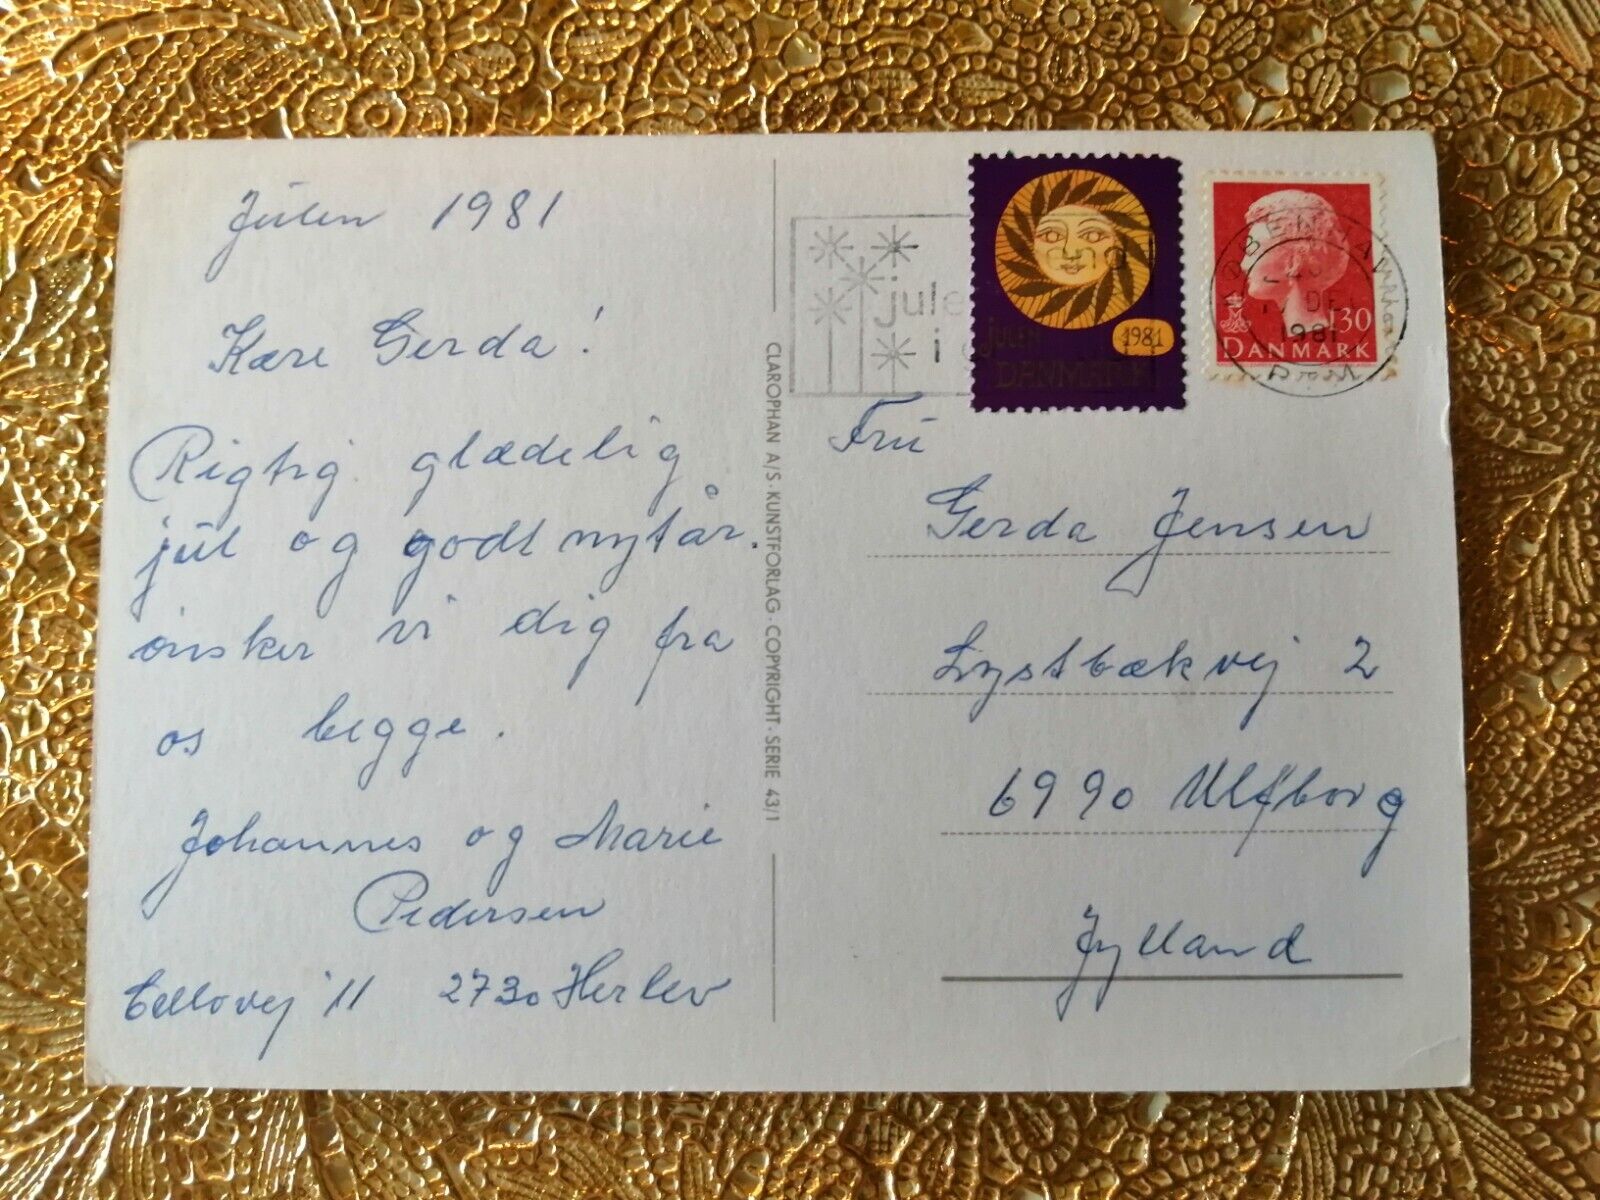 Julen 1981
Kære Gerda!
Rigtig glædelig
jul og godt nytår.
ønsker vi dig fra
os begge.
Johannes og Marie
Pedersen
Cellovej 11 2730 Herlev
CLAROPHAN A/S · KUNSTFORLAG · COPYRIGHT · SERIE 43/1
jule
i
JULEN
1981
DANMARK
130
DANMARK
KØBENHAVN
1981
Fru
Gerda Jensen
Lystbækvej 2
6990 Ulfborg
Jylland